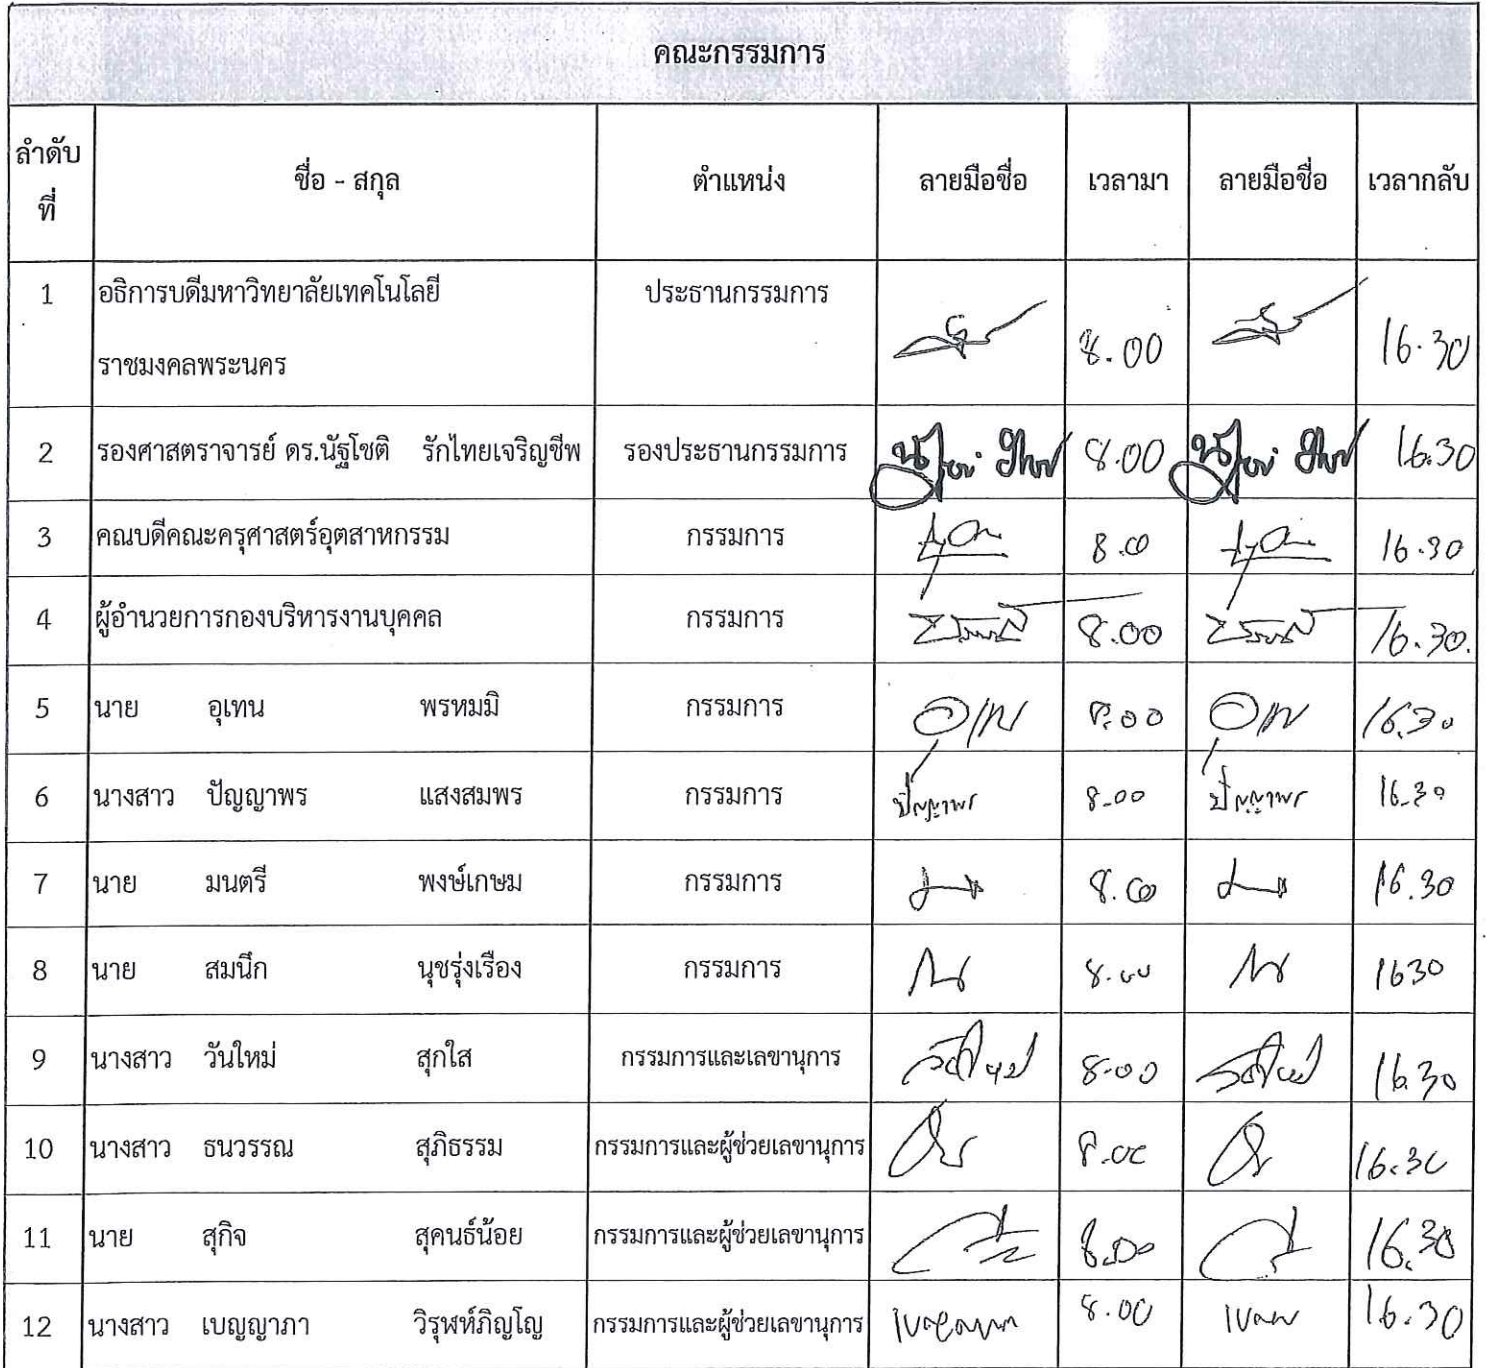 คณะกรรมการ
ลำดับที่ ชื่อ - สกุล ตำแหน่ง ลายมือชื่อ เวลามา ลายมือชื่อ เวลากลับ
1 อธิการบดีมหาวิทยาลัยเทคโนโลยี ประธานกรรมการ
ราชมงคลพระนคร 8.00 16.30
2 รองศาสตราจารย์ ดร.นัฐโชติ รักไทยเจริญชีพ รองประธานกรรมการ 8.00 16.30
3 คณบดีคณะครุศาสตร์อุตสาหกรรม กรรมการ 8.00 16.30
4 ผู้อำนวยการกองบริหารงานบุคคล กรรมการ 8.00 16.30.
5 นาย อุเทน พรหมมิ กรรมการ 8.00 16.30
6 นางสาว ปัญญาพร แสงสมพร กรรมการ ปัญญาพร 8.00 ปัญญาพร 16.30
7 นาย มนตรี พงษ์เกษม กรรมการ 8.00 16.30
8 นาย สมนึก นุชรุ่งเรือง กรรมการ 8.00 1630
9 นางสาว วันใหม่ สุกใส กรรมการและเลขานุการ 8.00 16.30
10 นางสาว ธนวรรณ สุภิธรรม กรรมการและผู้ช่วยเลขานุการ 8.00 16.30
11 นาย สุกิจ สุคนธ์น้อย กรรมการและผู้ช่วยเลขานุการ 8.00 16.30
12 นางสาว เบญญาภา วิรุฬห์ภิญโญ กรรมการและผู้ช่วยเลขานุการ 8.00 16.30